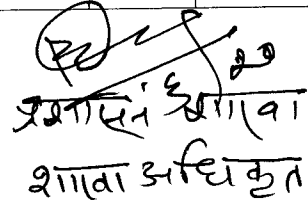 प्रशासन शाखा
शाखा अधिकृत